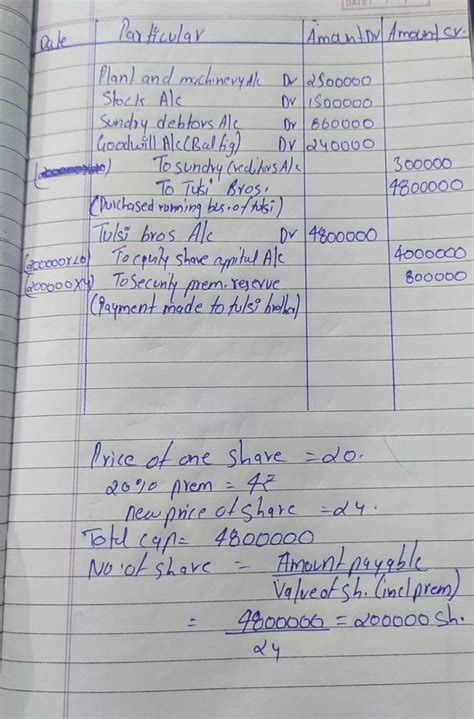 DATE
Date Particular Amount Dr Amount Cr.
Plant and machinery A/c Dr 2500000
Stock A/c Dr 1500000
Sundry debtors A/c Dr 860000
Goodwill A/c (Bal fig) Dr 240000
To sundry creditors A/c 300000
To Tulsi Bros. 4800000
(Purchased running bus. of tulsi)
Tulsi bros A/c Dr 4800000
(200000x20) To equity share capital A/c 4000000
(200000x4) To Security prem. reserve 800000
(Payment made to tulsi brother)
Price of one share = 20.
20% prem = 4
new price of share = 24.
Total cap = 4800000
No. of share = Amount payable
Value of sh. (incl prem)
= 4800000 = 200000 sh.
24